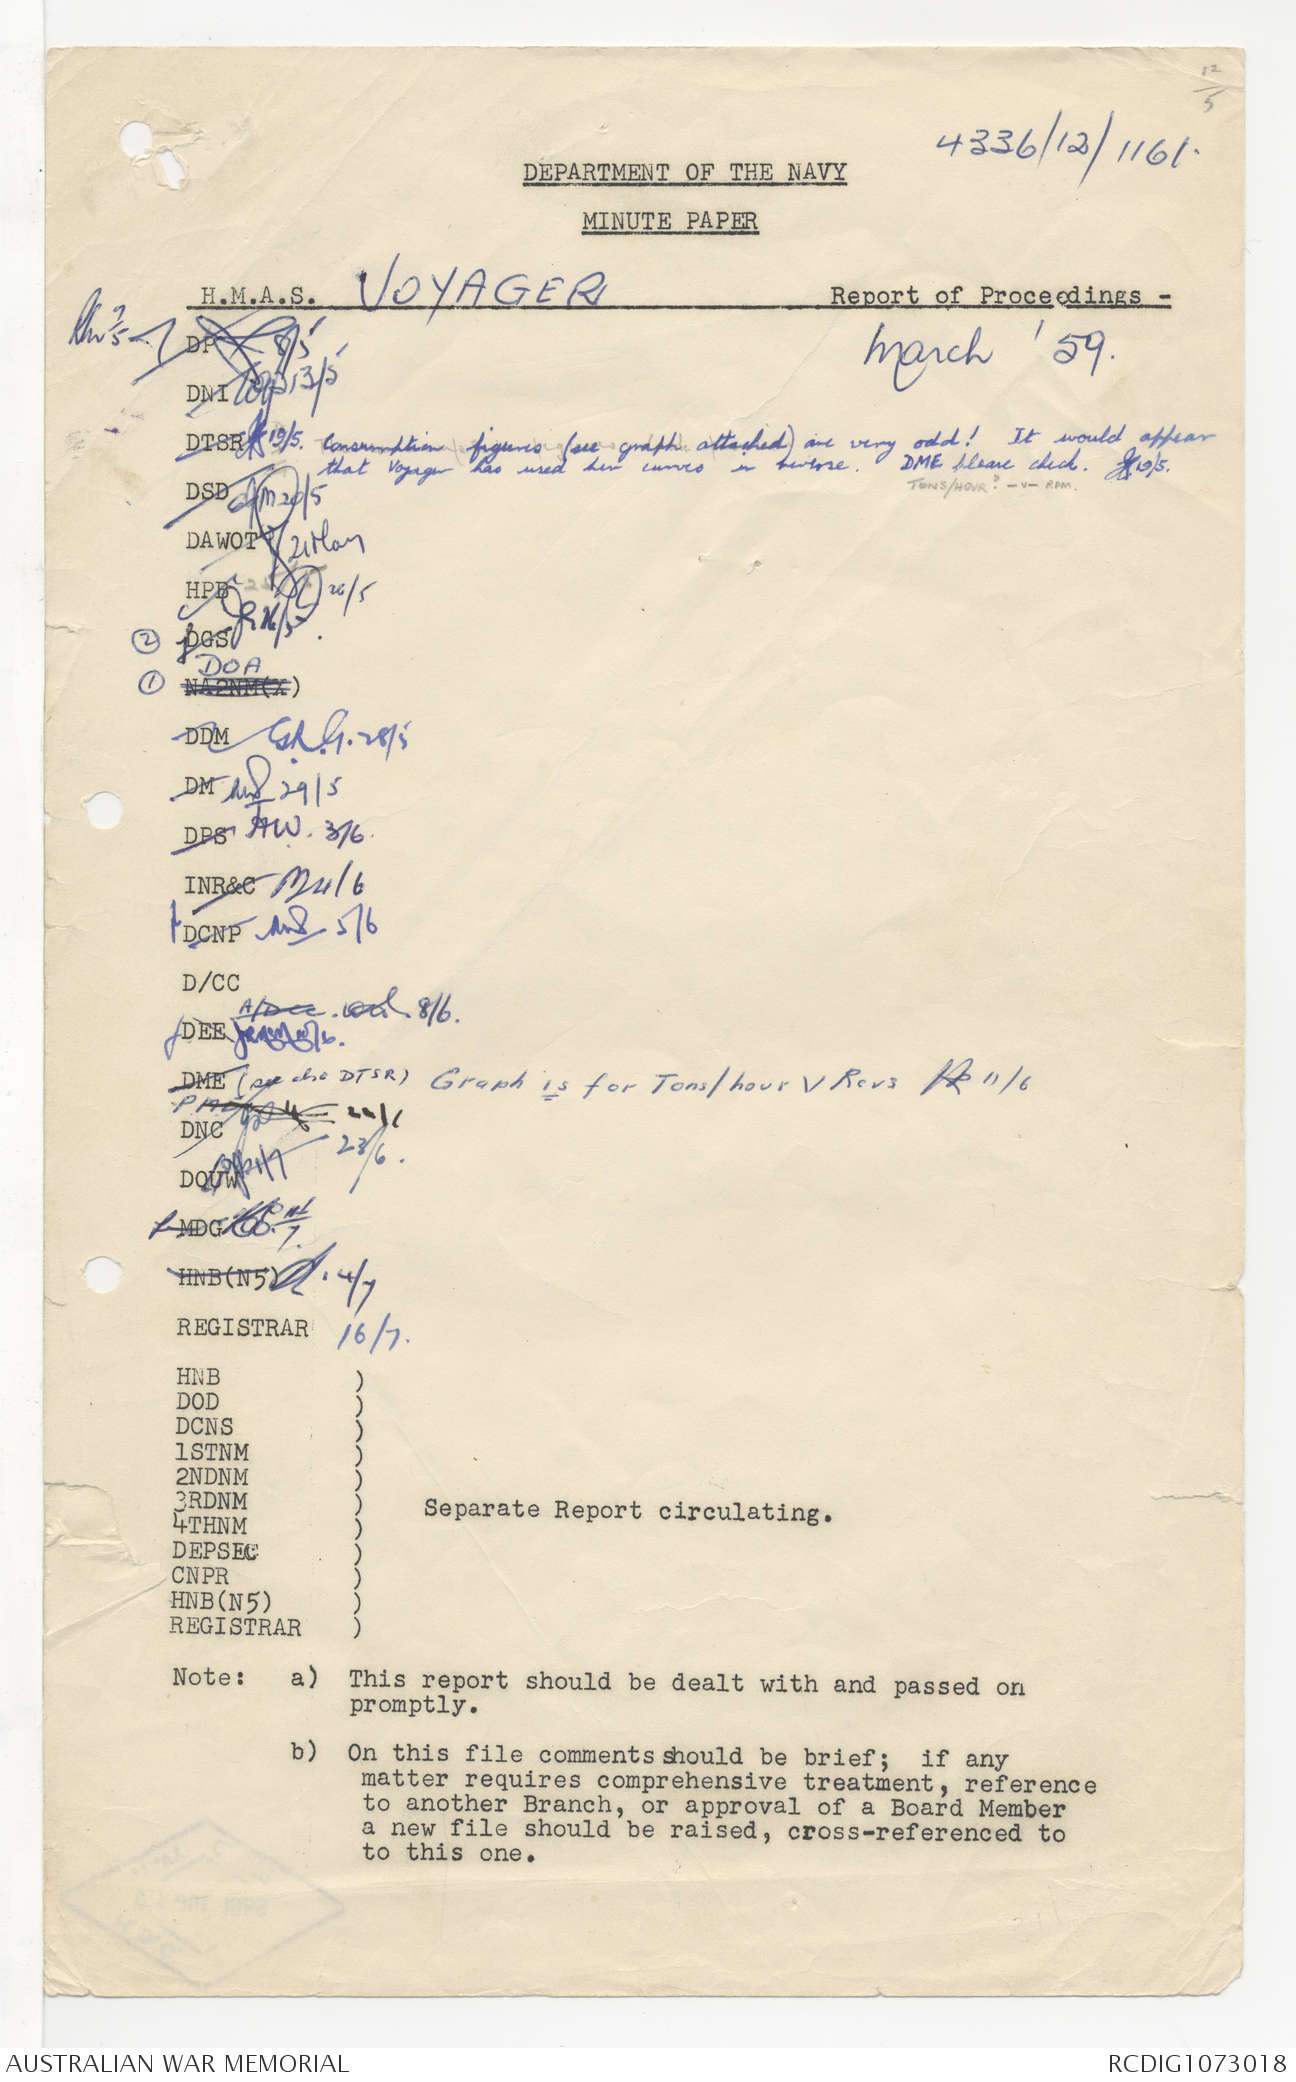 12/5
4336/12/1161.
DEPARTMENT OF THE NAVY
MINUTE PAPER
H.M.A.S. VOYAGER Report of Proceedings -
March '59.
DP 8/5
DNI 13/5
DTSR 19/5. Consumption figures (see graph attached) are very odd! It would appear
that Voyager has used her curves in reverse. DME please check. 19/5.
TONS/HOUR? -v- RPM.
DSD 20/5
DAWOT 21 May
HPB 26/5
② DGS 26/5.
DOA
① NA2NM(X)
DDM 28/5
DM 29/5
DPS AW. 3/6.
INR&C 4/6
DCNP 5/6
D/CC
A/DCC 8/6.
DEE
DME (see also DTSR) Graph is for Tons/hour V Revs 11/6
22/6
DNC 23/6.
DOUW
MDG
HNB(N5) 4/7
REGISTRAR 16/7.
HNB )
DOD )
DCNS )
1STNM )
2NDNM )
3RDNM ) Separate Report circulating.
4THNM )
DEPSEC )
CNPR )
HNB(N5) )
REGISTRAR )
Note: a) This report should be dealt with and passed on
promptly.
b) On this file comments should be brief; if any
matter requires comprehensive treatment, reference
to another Branch, or approval of a Board Member
a new file should be raised, cross-referenced to
to this one.
AUSTRALIAN WAR MEMORIAL RCDIG1073018